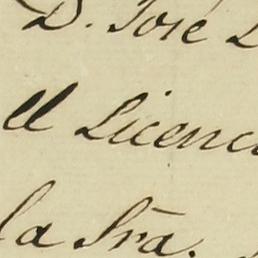 D. José
el Licenci
la Sra.